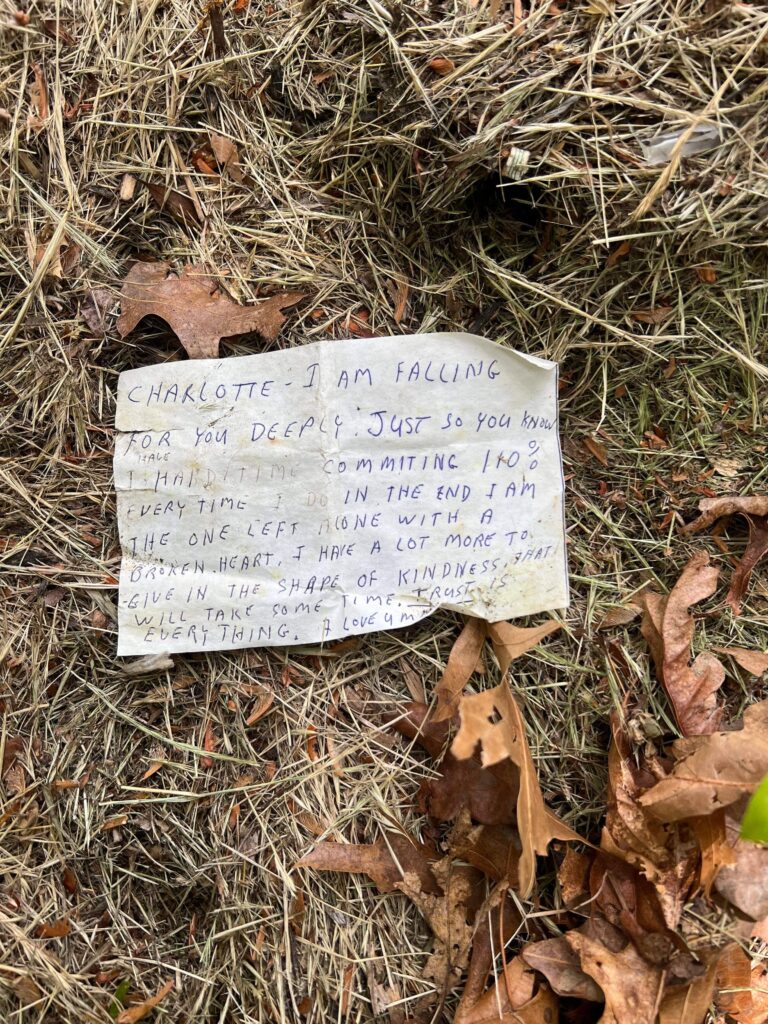 CHARLOTTE - I AM FALLING
FOR YOU DEEPLY. JUST SO YOU KNOW
HAVE
I HARD TIME COMMITING 110%
EVERY TIME I DO IN THE END I AM
THE ONE LEFT ALONE WITH A
BROKEN HEART. I HAVE A LOT MORE TO
GIVE IN THE SHAPE OF KINDNESS, THAT
WILL TAKE SOME TIME. TRUST IS
EVERYTHING. I LOVE U